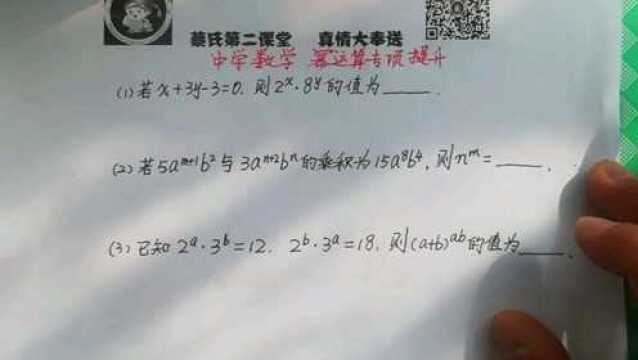 蔡氏第二课堂 真情大奉送
中学数学 幂运算专项提升
(1)若x+3y-3=0,则2ˣ·8ʸ的值为____.
(2)若5aᵐ⁺¹b²与3aⁿ⁺²bⁿ的乘积为15a⁸b⁴,则nᵐ=____.
(3)已知2ᵃ·3ᵇ=12, 2ᵇ·3ᵃ=18,则(a+b)ᵃᵇ的值为____.